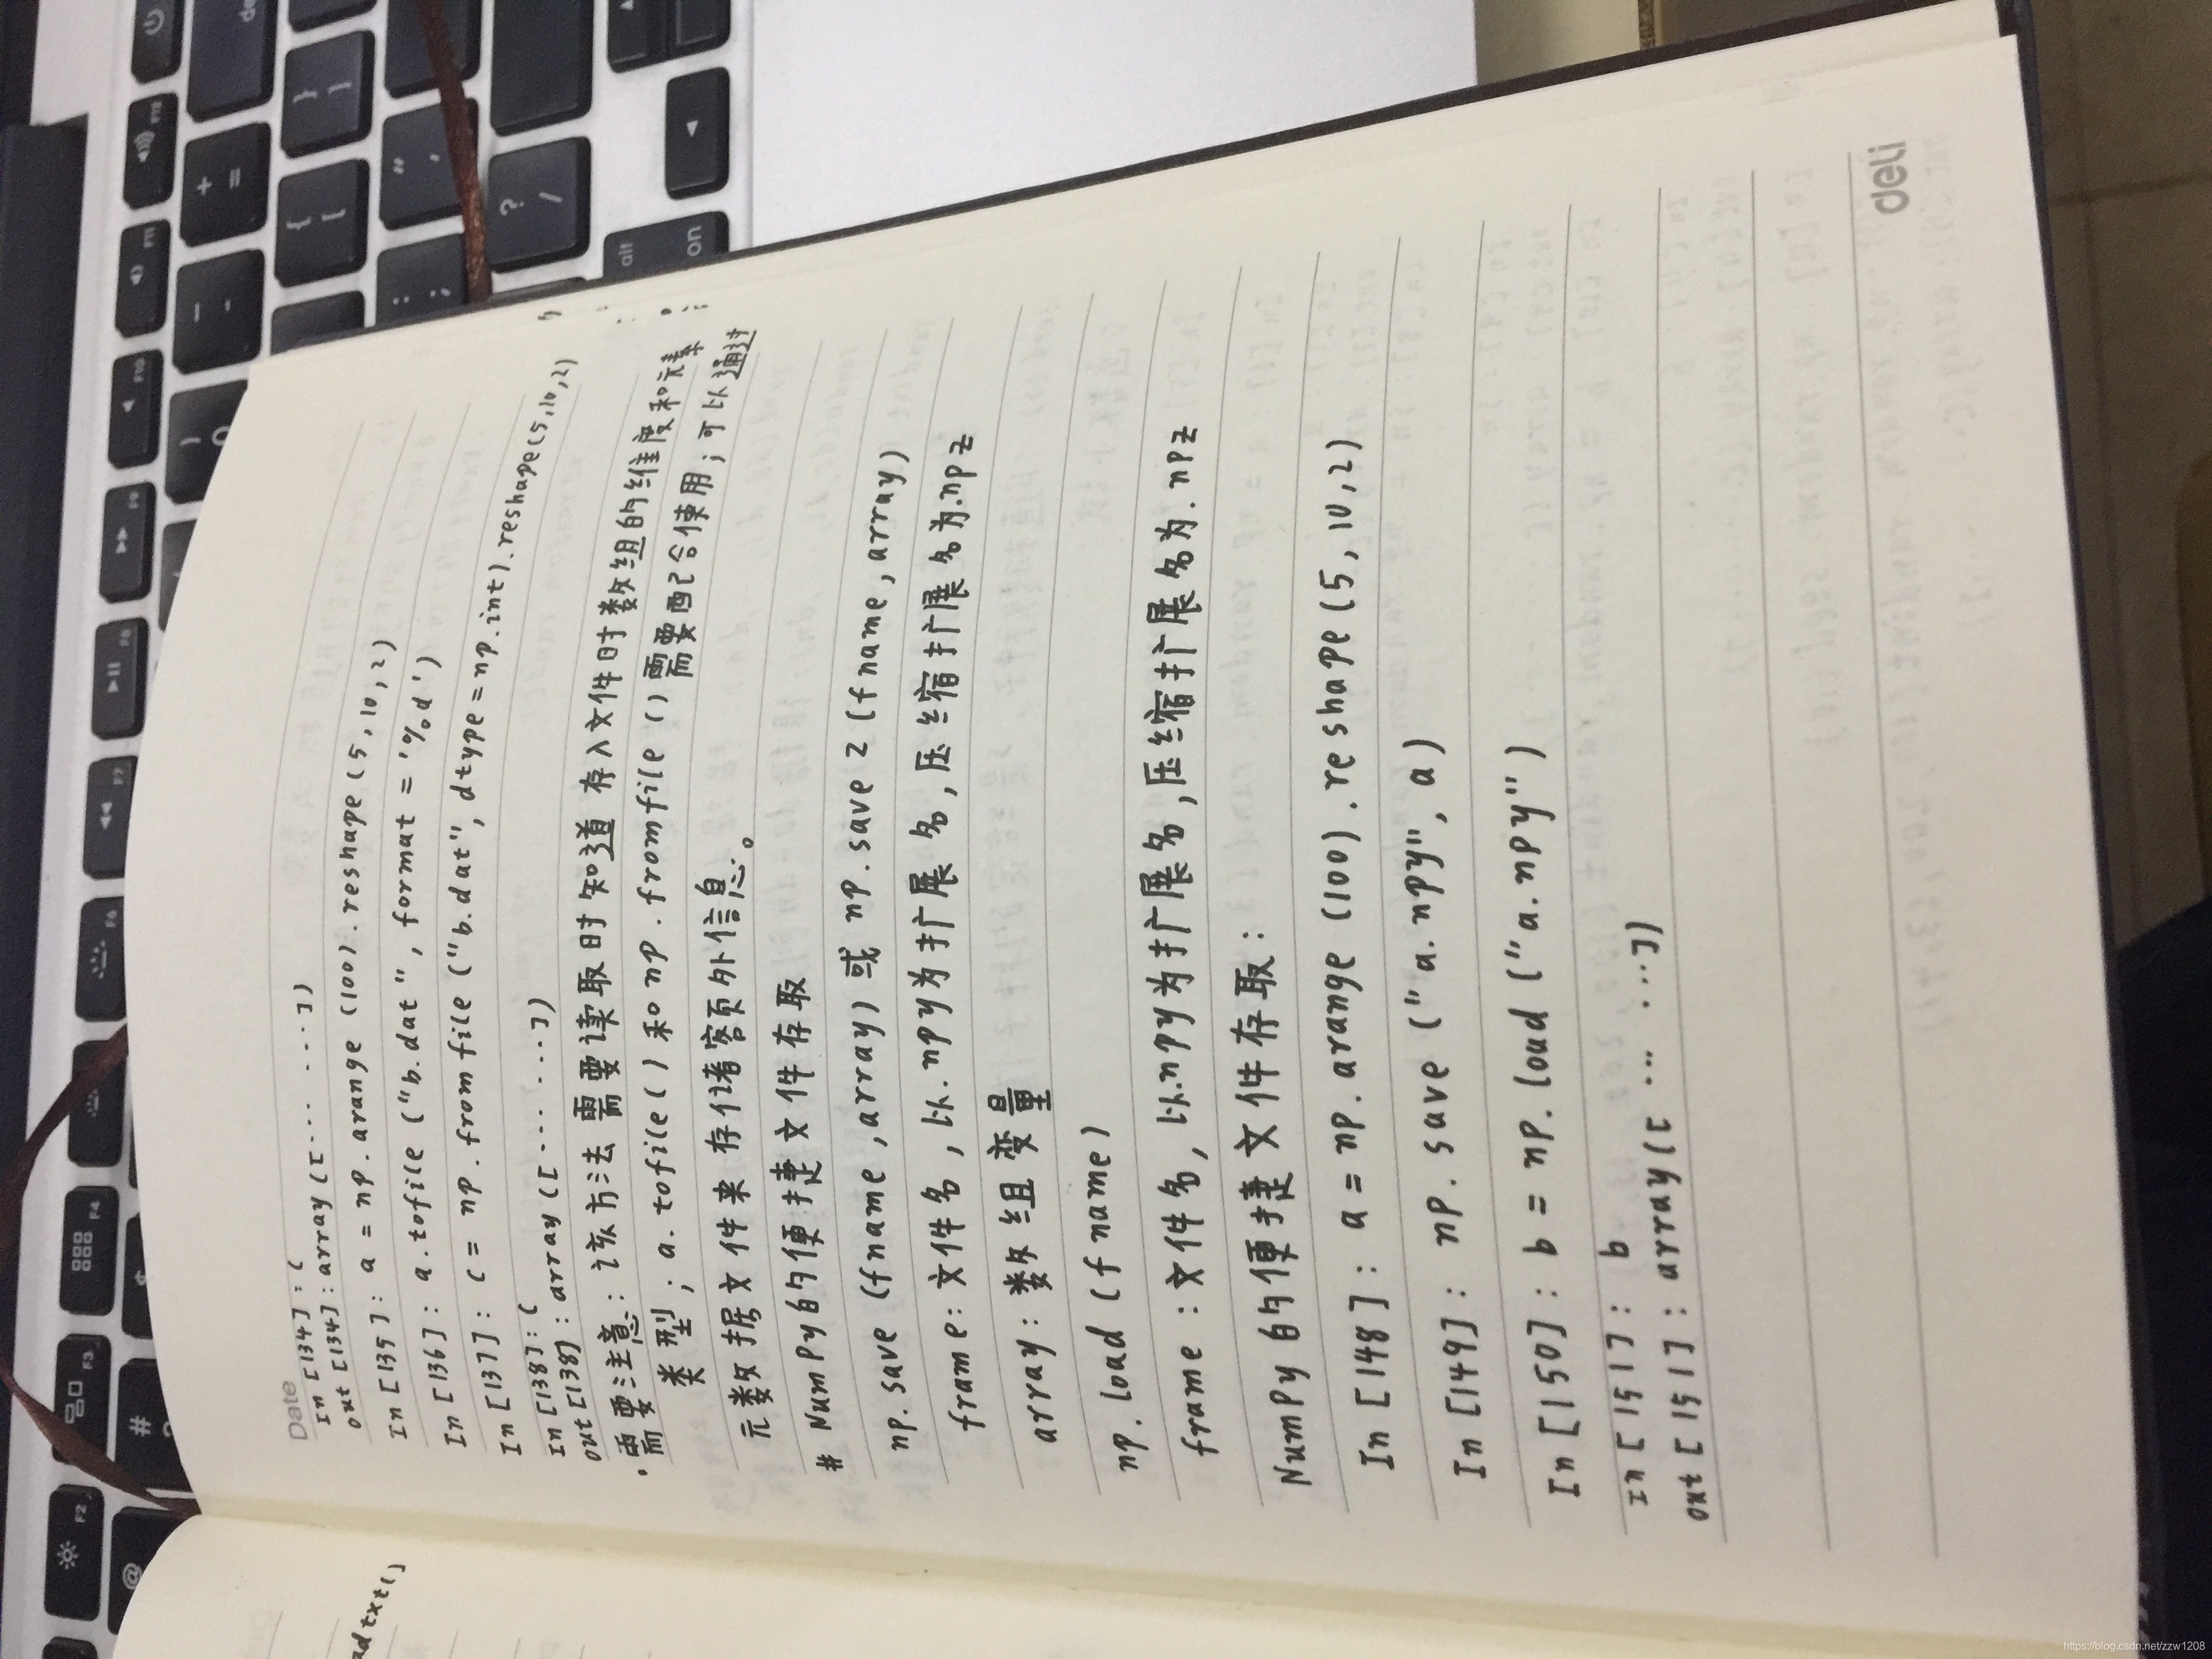 Date
In [134] : c
out [134] : array([... ...])
In [135] : a = np.arange (100).reshape (5,10,2)
In [136] : a.tofile ("b.dat", format = '%d')
In [137] : c = np.fromfile ("b.dat", dtype = np.int).reshape(5,10,2)
In [138] : c
out [138] : array ([... ...])
·需要注意：该方法需要读取时知道存入文件时数组的维度和元素
类型；a.tofile()和np.fromfile()需要配合使用；可以通过
元数据文件来存储额外信息。
# NumPy的便捷文件存取
np.save (fname, array) 或 np.save2 (fname, array)
frame：文件名，以.npy为扩展名，压缩扩展名为.npz
array：数组变量
np.load (fname)
frame：文件名，以.npy为扩展名，压缩扩展名为.npz
NumPy的便捷文件存取：
In [148] : a = np.arange (100).reshape (5,10,2)
In [149] : np.save ("a.npy", a)
In [150] : b = np.load ("a.npy")
In [151] : b
out [151] : array([ ... ...])
deli
adtxt()
F2
F3
F4
F6
F7
F8
F9
F10
F11
F12
@
#
alt
?
/
+
=
{
[
}
]
"
'
:
;
)
0
https://blog.csdn.net/zzw1208